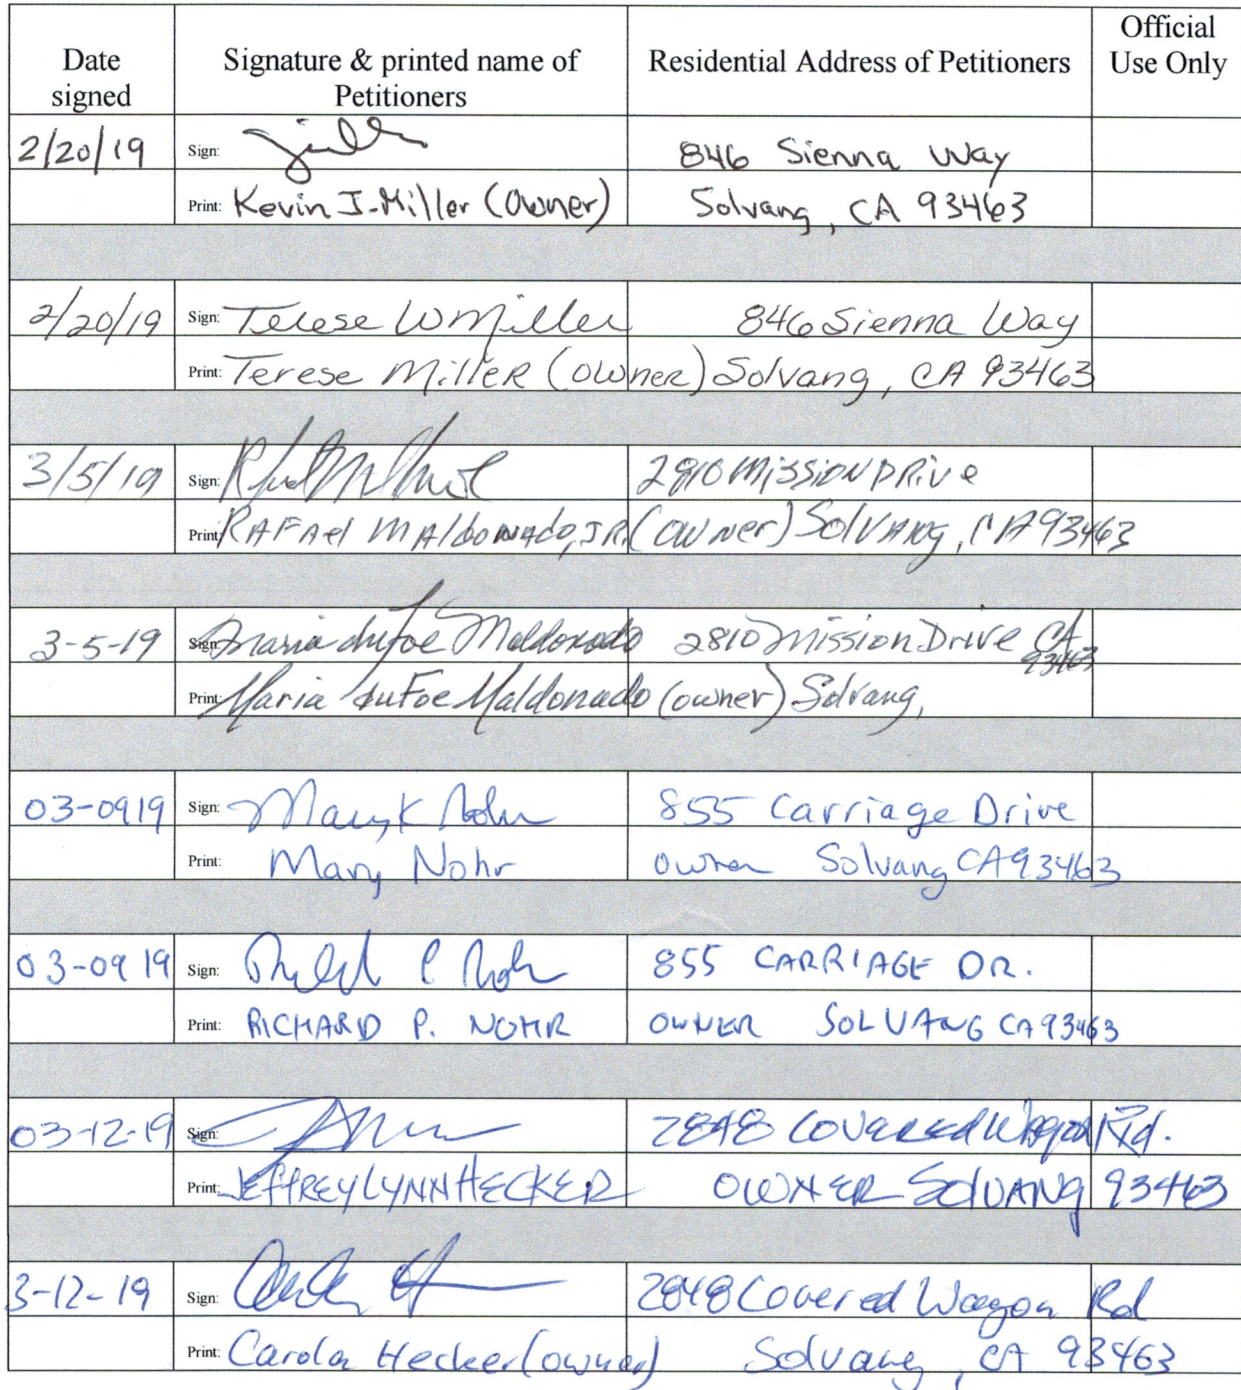 Date signed Signature & printed name of Petitioners Residential Address of Petitioners Official Use Only
2/20/19 Sign: 846 Sienna Way
Print: Kevin J. Miller (Owner) Solvang, CA 93463
2/20/19 Sign: Terese W Miller 846 Sienna Way
Print: Terese Miller (owner) Solvang, CA 93463
3/5/19 Sign: 2810 Mission Drive
Print: Rafael Maldonado, Jr. (owner) Solvang, CA 93463
3-5-19 Sign: Maria duFoe Maldonado 2810 Mission Drive CA 93463
Print: Maria duFoe Maldonado (owner) Solvang,
03-0919 Sign: Mary K Nohr 855 Carriage Drive
Print: Mary Nohr owner Solvang CA 93463
03-09 19 Sign: 855 CARRIAGE DR.
Print: RICHARD P. NOHR OWNER SOLVANG CA 93463
03-12-19 Sign: 2848 Covered Wagon Rd.
Print: JEFFREY LYNN HECKER OWNER SOLVANG 93463
3-12-19 Sign: 2848 Covered Wagon Rd
Print: Carola Hecker (owner) Solvang, CA 93463